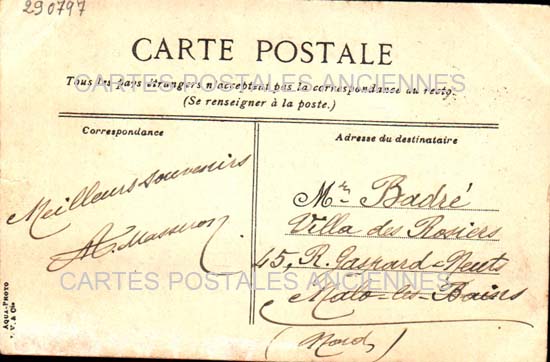 290797
CARTE POSTALE
Tous les pays étrangers n'acceptent pas la correspondance au recto.
(Se renseigner à la poste.)
CARTES POSTALES ANCIENNES
Correspondance
Meilleurs souvenirs
Adresse du destinataire
Mr Badré
Villa des Rosiers
45, R. Gaspard-Neuts
Malo-les-Bains
(Nord)
CARTES POSTALES ANCIENNES
AQUA-PHOTO